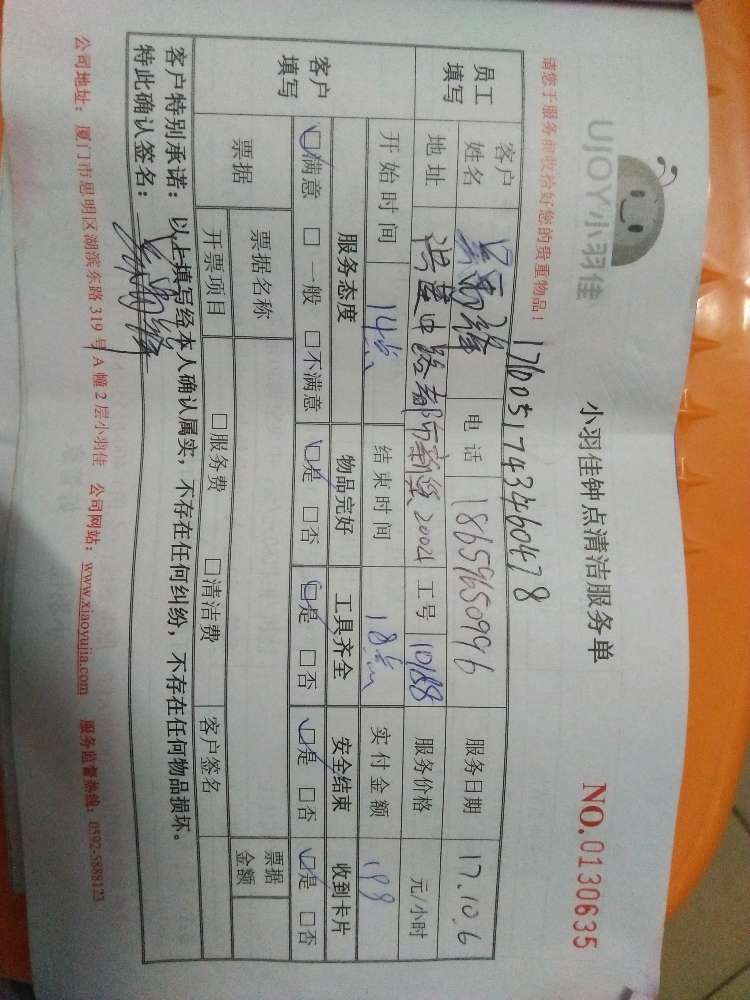 UJOY小羽佳
小羽佳钟点清洁服务单
NO.0130635
请您于服务前收拾好您的贵重物品！
176051743460478
员工填写
客户姓名
电话 18659650996
服务日期 17.10.6
地址
2004
工号 10188
服务价格 元/小时
客户填写
开始时间 14点
结束时间 18点
实付金额 198
服务态度 物品完好 工具齐全 安全结束 收到卡片
☑满意 □一般 □不满意 ☑是 □否 ☑是 □否 ☑是 □否 ☑是 □否
票据
票据名称
票据金额
开票项目 □服务费 □清洁费 客户签名
客户特别承诺：以上填写经本人确认属实，不存在任何纠纷，不存在任何物品损坏。
特此确认签名：
公司地址：厦门市思明区湖滨东路319号A幢2层小羽佳 公司网站：www.xiaoyujia.com 服务监督热线：0592-5888123